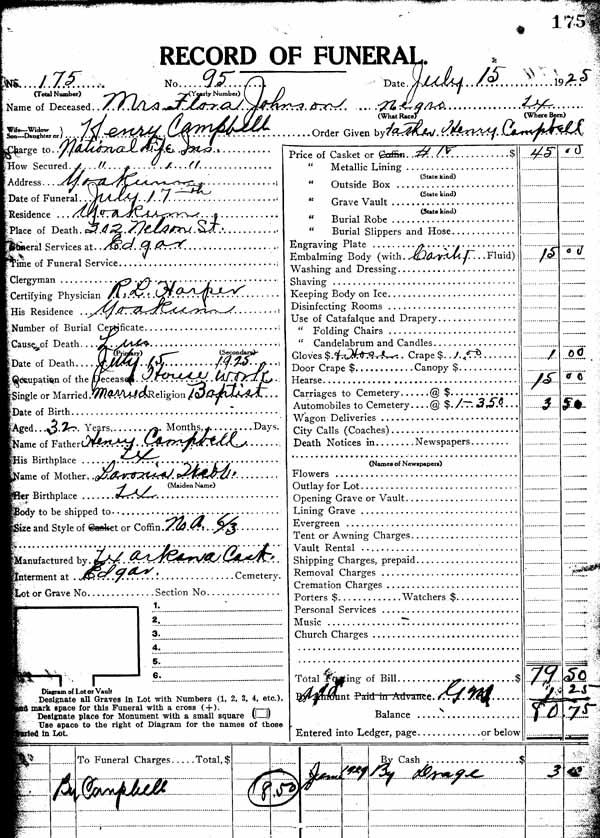 175
RECORD OF FUNERAL.
No. 175 No. 95 Date July 15 1925
(Total Number) (Yearly Number)
Name of Deceased Mrs Flora Johnson negro Tx
(What Race) (Where Born)
Wife—Widow
Son—Daughter of Henry Campbell Order Given by Father Henry Campbell
Charge to National Life Ins.
How Secured " " "
Address Yoakum
Date of Funeral July 17th
Residence Yoakum
Place of Death 202 Nelson St.
Funeral Services at Edgar
Time of Funeral Service
Clergyman
Certifying Physician R.D. Harper
His Residence Yoakum
Number of Burial Certificate
Cause of Death
(Primary) (Secondary)
Date of Death July 15 1925
Occupation of the Deceased House Work
Single or Married Married Religion Baptist
Date of Birth
Aged 32 Years Months Days.
Name of Father Henry Campbell
His Birthplace Tx
Name of Mother Lavonia Webb.
(Maiden Name)
Her Birthplace Tx
Body to be shipped to
Size and Style of Casket or Coffin N.A. 6/3
Manufactured by Texarkana Cask.
Interment at Edgar Cemetery.
Lot or Grave No. Section No.
1.
2.
3.
4.
5.
6.
Diagram of Lot or Vault
Designate all Graves in Lot with Numbers (1, 2, 3, 4, etc.),
and mark space for this Funeral with a cross (+).
Designate place for Monument with a small square
Use space to the right of Diagram for the names of those
buried in Lot.
Price of Casket or Coffin $ 45 00
" Metallic Lining
(State kind)
" Outside Box
(State kind)
" Grave Vault
(State kind)
" Burial Robe
" Burial Slippers and Hose
Engraving Plate
Embalming Body (with Cavity Fluid) 15 00
Washing and Dressing
Shaving
Keeping Body on Ice
Disinfecting Rooms
Use of Catafalque and Drapery
" Folding Chairs
" Candelabrum and Candles
Gloves $ & Hose Crape $ 1.00 1 00
Door Crape $ Canopy $
Hearse 15 00
Carriages to Cemetery @ $
Automobiles to Cemetery @ $ 1-3.50 3 50
Wagon Deliveries
City Calls (Coaches)
Death Notices in Newspapers
(Names of Newspapers)
Flowers
Outlay for Lot
Opening Grave or Vault
Lining Grave
Evergreen
Tent or Awning Charges
Vault Rental
Shipping Charges, prepaid
Removal Charges
Cremation Charges
Porters $ Watchers $
Personal Services
Music
Church Charges
Total Footing of Bill $ 79 50
By Amount Paid in Advance 1 25
Balance 80 75
Entered into Ledger, page or below
To Funeral Charges Total, $ By Cash $
By Campbell 78.50 June 1929 By Drage 3 00